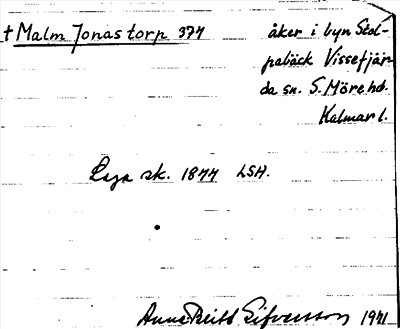 † Malm Jonas torp 374
åker i byn Stol-
pabäck Vissefjär
da sn. S. Möre hd.
Kalmar l.
Laga sk. 1877 LSH.
Anna-Britt Sifversson 1941